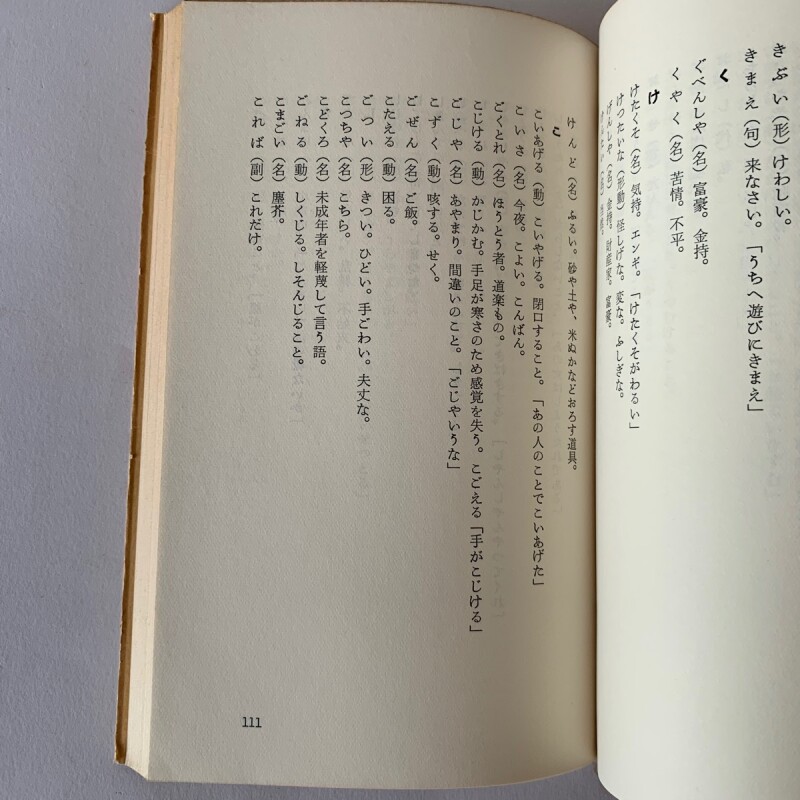 きぶい（形）けわしい。
きまえ（句）来なさい。「うちへ遊びにきまえ」
く
ぐべんしゃ（名）富豪。金持。
くやく（名）苦情。不平。
け
けたくそ（名）気持。エンギ。「けたくそがわるい」
けつたいな（形動）怪しげな。変な。ふしぎな。
げんしゃ（名）金持。財産家。富豪。
けんど（名）ふるい。砂や土や、米ぬかなどおろす道具。
こ
こいあげる（動）こいやげる。閉口すること。「あの人のことでこいあげた」
こいさ（名）今夜。こよい。こんばん。
ごくとれ（名）ほうとう者。道楽もの。
こじける（動）かじかむ。手足が寒さのため感覚を失う。こごえる「手がこじける」
ごじや（名）あやまり。間違いのこと。「ごじやいうな」
こずく（動）咳する。せく。
ごぜん（名）ご飯。
こたえる（動）困る。
ごつい（形）きつい。ひどい。手ごわい。大丈な。
こつちや（名）こちら。
こどくろ（名）未成年者を軽蔑して言う語。
ごねる（動）しくじる。しそんじること。
こまごい（名）塵芥。
こればあ（副）これだけ。
111